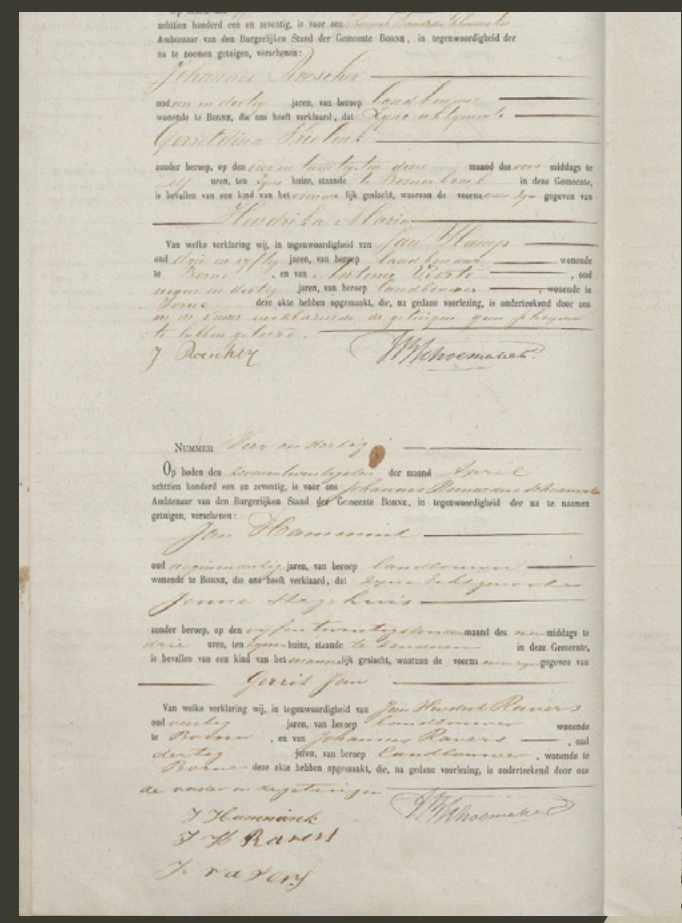 achttien honderd een en zeventig, is voor ons
Ambtenaar van den Burgerlijken Stand der Gemeente BORNE, in tegenwoordigheid der
na te noemen getuigen, verschenen:
Johannes
oud een en dertig jaren, van beroep landbouwer
wonende te BORNE, die ons heeft verklaard, dat zijne echtgenoote
Gerritdina
zonder beroep, op den dezer maand des voor middags te
elf uren, ten zijne huize, staande te in deze Gemeente,
is bevallen van een kind van het vrouwelijk geslacht, waaraan de voornamen zijn gegeven van
Hendrika Maria
Van welke verklaring wij, in tegenwoordigheid van Jan Kamp
oud drie en vijftig jaren, van beroep landbouwer wonende
te Borne, en van Antonie, oud
negen en dertig jaren, van beroep landbouwer, wonende te
Borne deze akte hebben opgemaakt, die, na gedane voorlezing, is onderteekend door ons
en de vader verklarende de getuigen geen schrijven
te hebben geleerd.
J JBSchoemaker
NUMMER Vier en dertig
Op heden den zevenentwintigsten der maand April
achttien honderd een en zeventig, is voor ons Johannes Bernardus Schoemaker
Ambtenaar van den Burgerlijken Stand der Gemeente BORNE, in tegenwoordigheid der na te noemen
getuigen, verschenen:
Jan Hammink
oud jaren, van beroep landbouwer
wonende te BORNE, die ons heeft verklaard, dat zijne echtgenoote
Jenne Stegehuis
zonder beroep, op den vijfentwintigsten dezer maand des namiddags te
drie uren, ten zijnen huize, staande te in deze Gemeente,
is bevallen van een kind van het mannelijk geslacht, waaraan de voornamen zijn gegeven van
Gerrit Jan
Van welke verklaring wij, in tegenwoordigheid van Jan Hendrik Ravers
oud veertig jaren, van beroep landbouwer wonende
te Borne, en van Johannes Ravers, oud
dertig jaren, van beroep landbouwer, wonende te
Borne deze akte hebben opgemaakt, die, na gedane voorlezing, is onderteekend door ons
de vader en de getuigen
JBSchoemaker
J Hammink
J H Ravers
J ravers